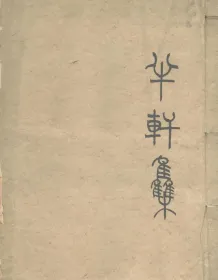 半軒集